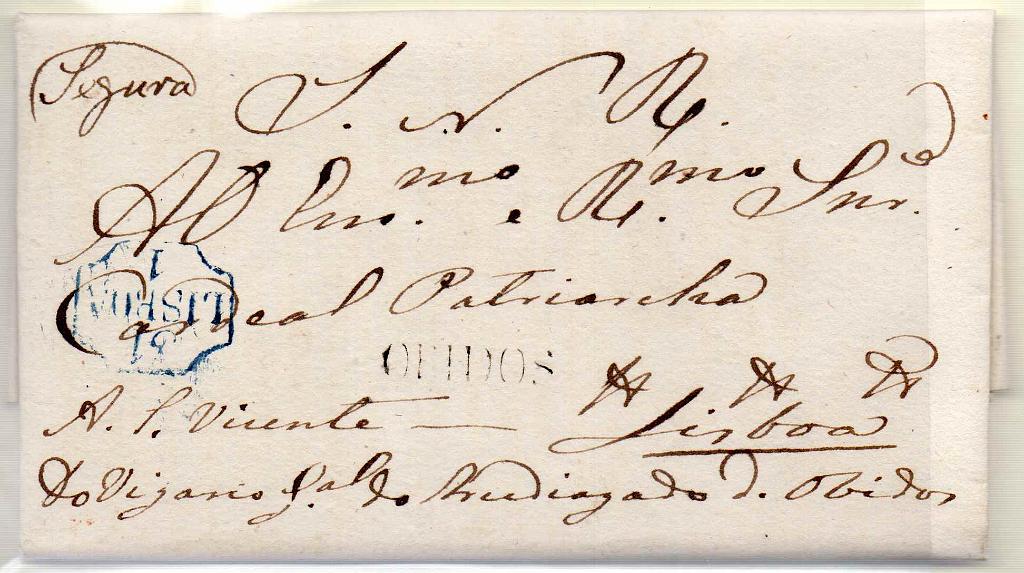 Segura
S. N. R.
Ao Emo. mo e R. mo Snr.
Cardeal Patriarcha
LISBOA
1
31
OBIDOS
A S. Vicente — Lisboa
Do Vigario G.al do Arcediagado d. Obidos